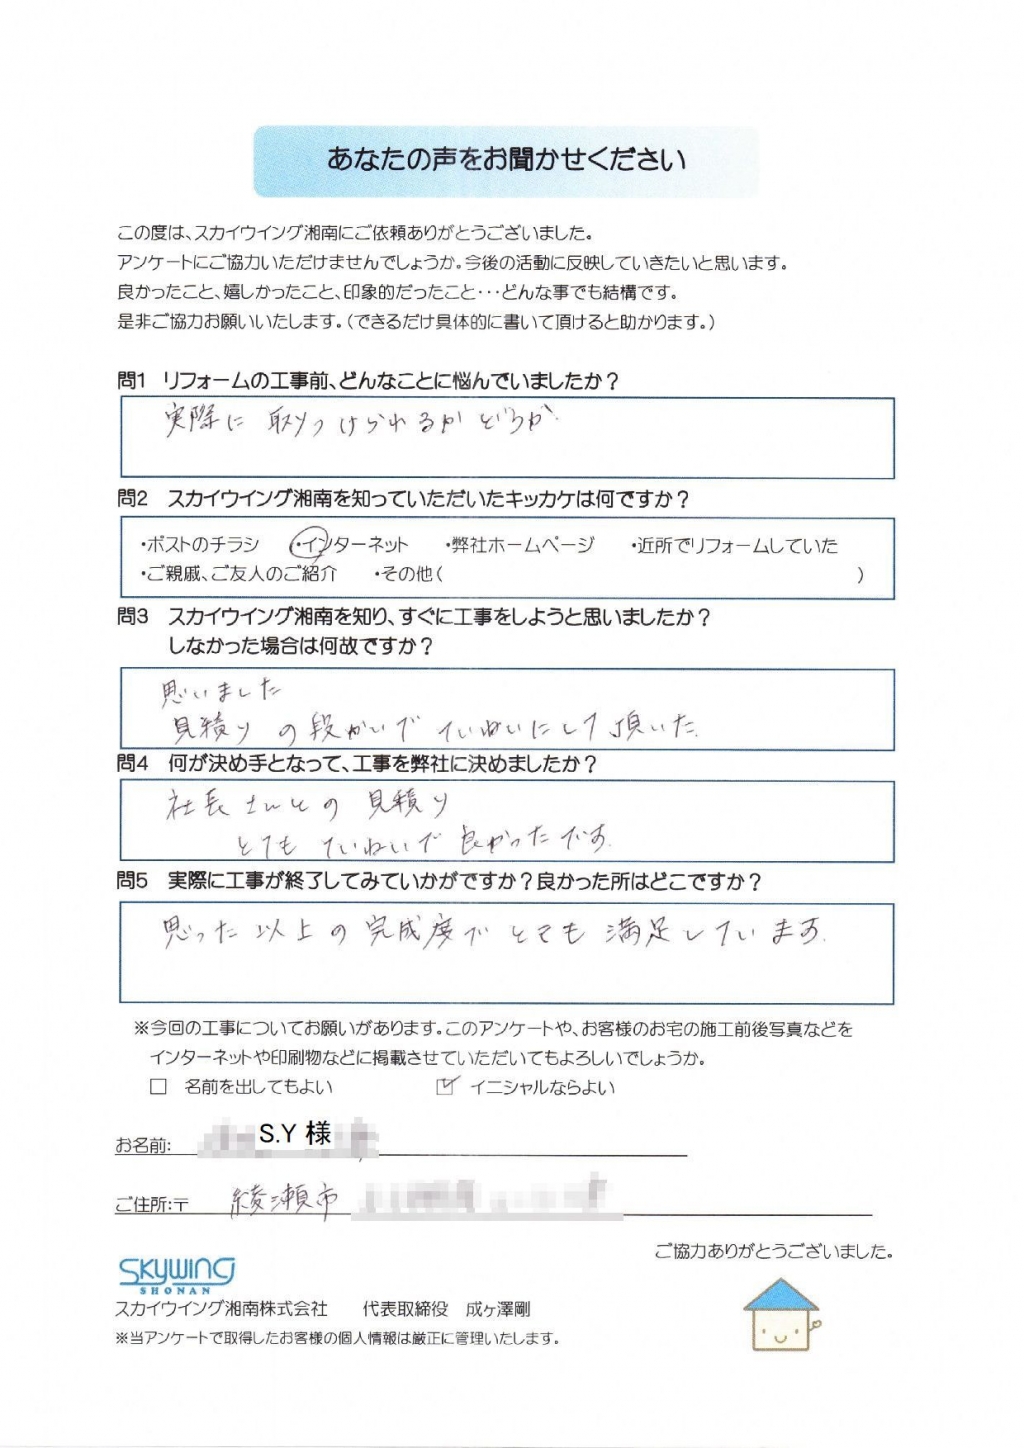 あなたの声をお聞かせください
この度は、スカイウイング湘南にご依頼ありがとうございました。
アンケートにご協力いただけませんでしょうか。今後の活動に反映していきたいと思います。
良かったこと、嬉しかったこと、印象的だったこと・・・どんな事でも結構です。
是非ご協力お願いいたします。（できるだけ具体的に書いて頂けると助かります。）
問1 リフォームの工事前、どんなことに悩んでいましたか？
実際に 取りつけられるか どうか.
問2 スカイウイング湘南を知っていただいたキッカケは何ですか？
・ポストのチラシ ・インターネット ・弊社ホームページ ・近所でリフォームしていた
・ご親戚、ご友人のご紹介 ・その他（ ）
問3 スカイウイング湘南を知り、すぐに工事をしようと思いましたか？
しなかった場合は何故ですか？
思いました
見積り の段かいで ていねいにして頂いた.
問4 何が決め手となって、工事を弊社に決めましたか？
社長さんとの 見積り
とても ていねいで 良かったです.
問5 実際に工事が終了してみていかがですか？良かった所はどこですか？
思った以上の完成度で とても 満足しています.
※今回の工事についてお願いがあります。このアンケートや、お客様のお宅の施工前後写真などを
インターネットや印刷物などに掲載させていただいてもよろしいでしょうか。
□ 名前を出してもよい ☑ イニシャルならよい
お名前: S.Y 様
ご住所:〒 綾瀬市
ご協力ありがとうございました。
SKYWING
SHONAN
スカイウイング湘南株式会社 代表取締役 成ヶ澤剛
※当アンケートで取得したお客様の個人情報は厳正に管理いたします。